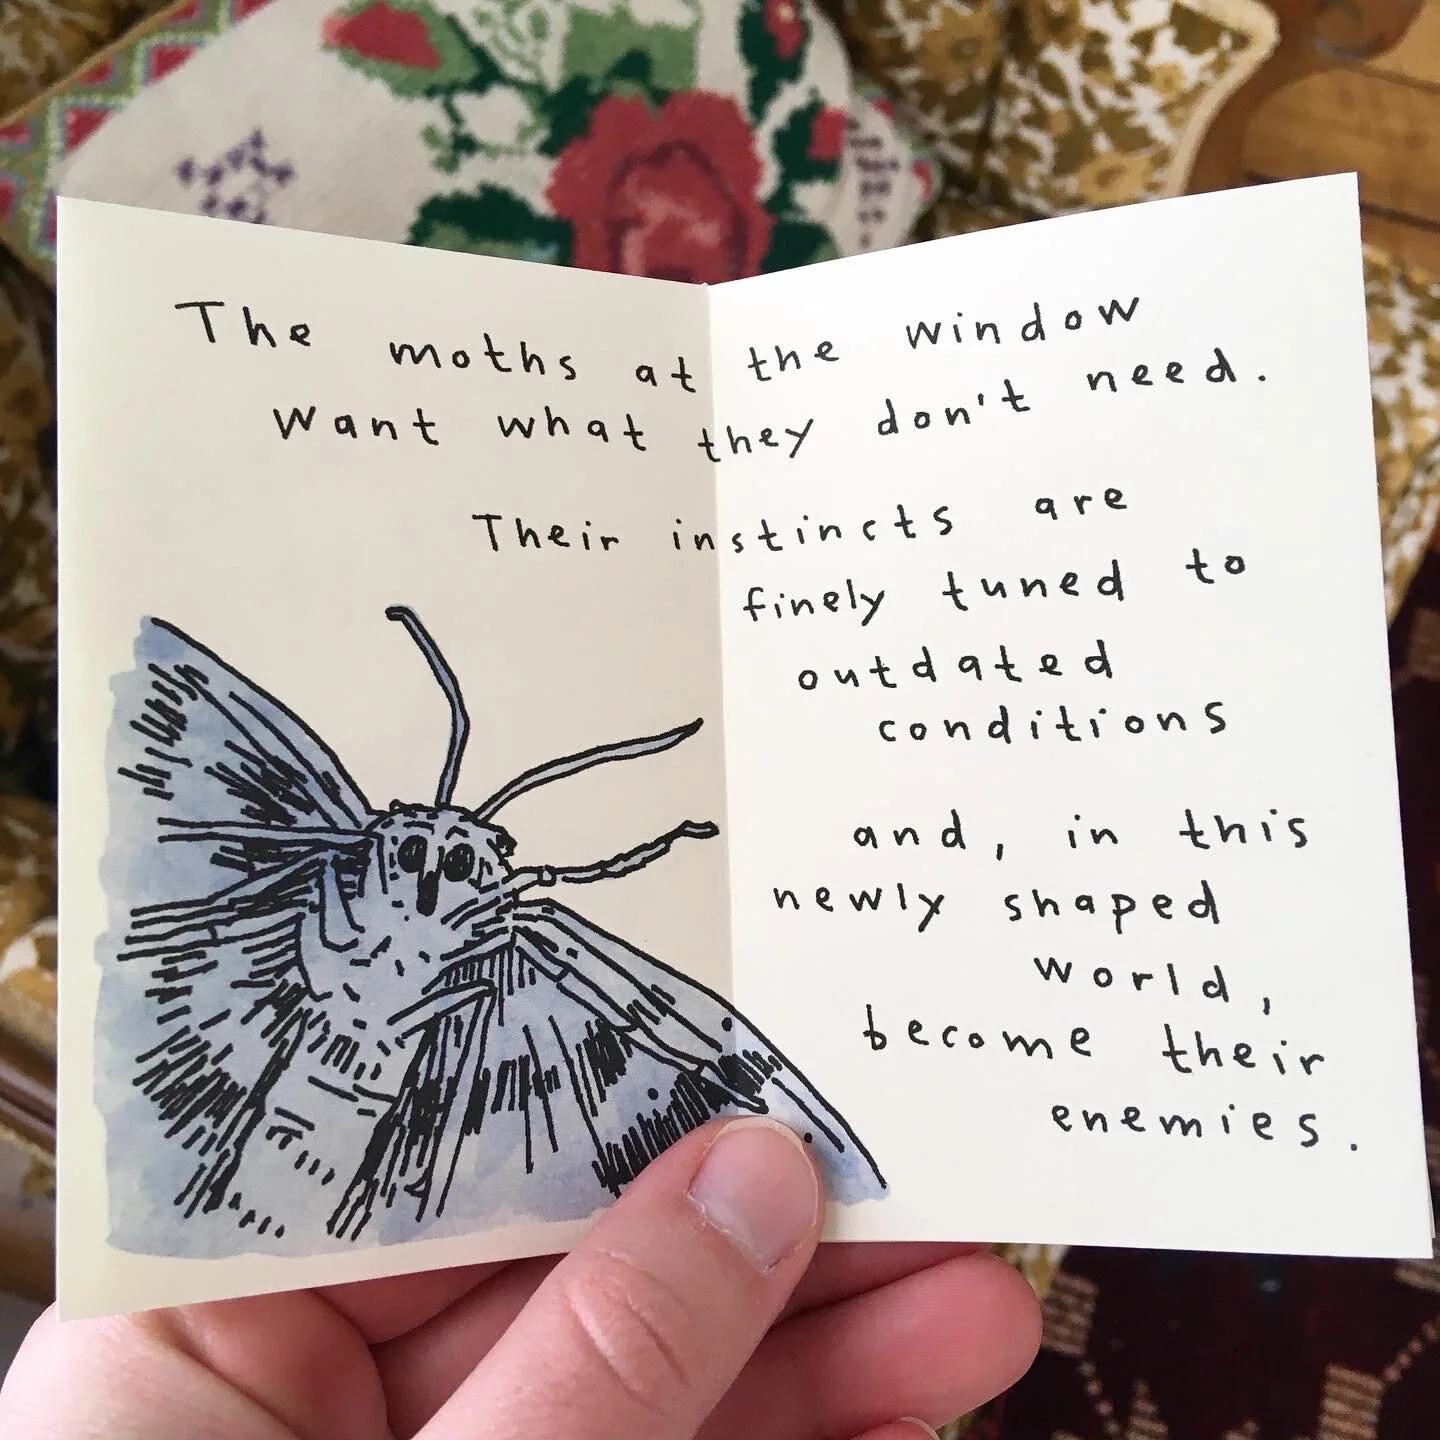 The moths at the window
want what they don't need.
Their instincts are
finely tuned to
outdated
conditions
and, in this
newly shaped
world,
become their
enemies.